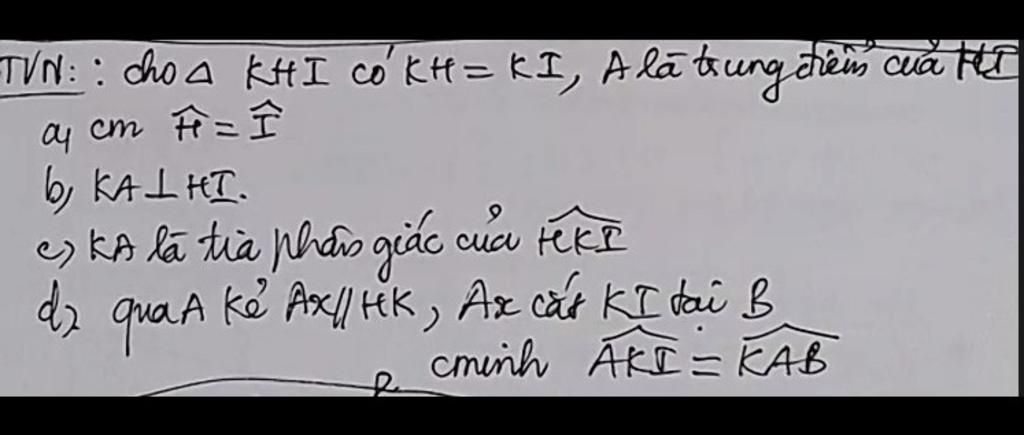 TVN: : cho Δ KHI có KH = KI, A là trung điểm của HI
a, cm Ĥ = Î
b, KA ⊥ HI.
c, KA là tia phân giác của HKI
d, qua A kẻ Ax // HK, Ax cắt KI tại B
cminh AKI = KAB